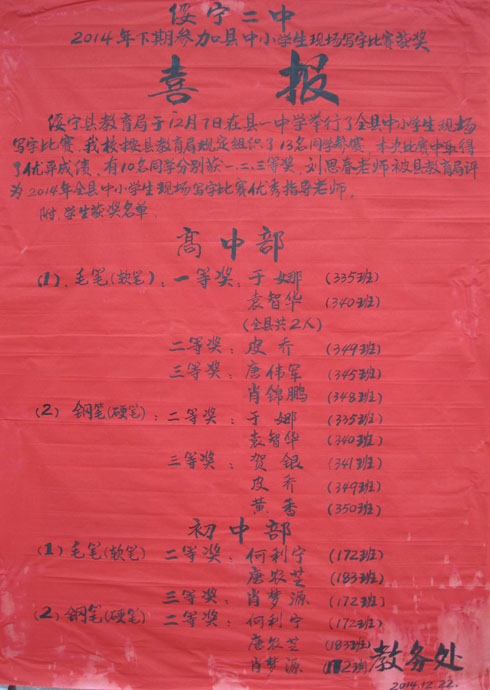 绥宁二中
2014年下期参加县中小学生现场写字比赛获奖
喜报
绥宁县教育局于12月7日在县一中学举行了全县中小学生现场
写字比赛、我校按县教育局规定组织了13名同学参赛、本次比赛中取得
了优异成绩、有10名同学分别获一、二、三等奖、刘思春老师被县教育局评
为2014年全县中小学生现场写字比赛优秀指导老师。
附：学生获奖名单
高中部
(1)、毛笔(软笔)：一等奖：于娜 (335班)
袁智华 (340班)
(全县共2人)
二等奖：皮乔 (349班)
三等奖：唐伟军 (345班)
肖锦鹏 (348班)
(2) 钢笔(硬笔)：二等奖：于娜 (335班)
袁智华 (340班)
三等奖：贺银 (341班)
皮乔 (349班)
黄香 (350班)
初中部
(1)毛笔(软笔) 二等奖：何利宁 (172班)
唐苡芝 (183班)
三等奖：肖梦源 (172班)
(2)钢笔(硬笔) 二等奖：何利宁 (172班)
唐苡芝 (183班)
肖梦源 (172班)
教务处
2014.12.22.